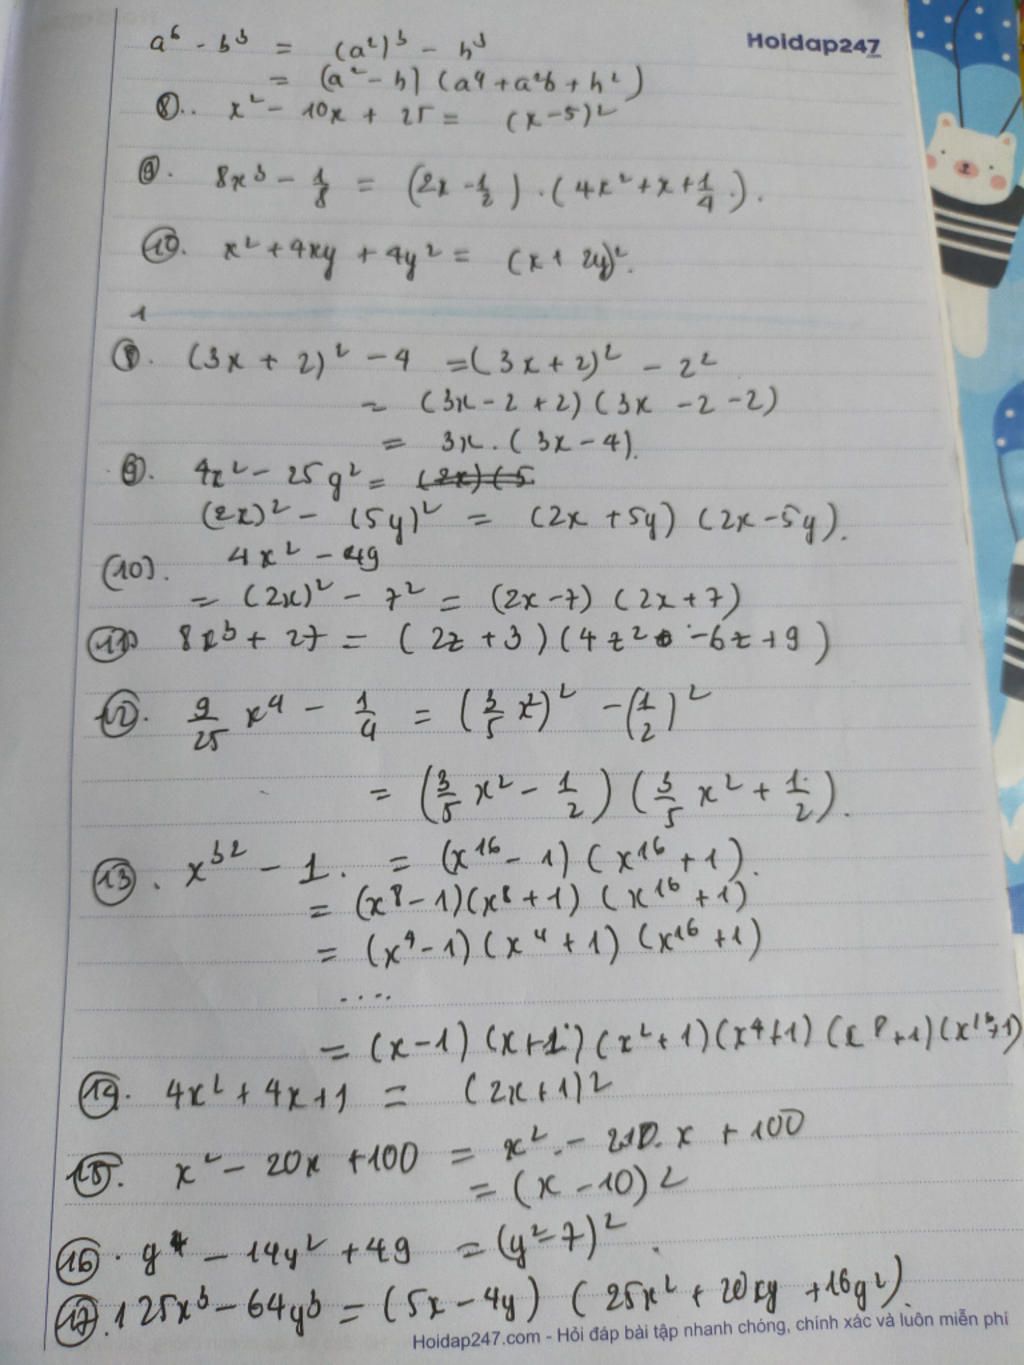 a⁶ - b³ = (a²)³ - b³
Hoidap247
= (a² - b) (a⁴ + a²b + b²)
⑧.. x² - 10x + 25 = (x - 5)²
⑨. 8x³ - 1/8 = (2x - 1/2) . (4x² + x + 1/4.).
⑩. x² + 4xy + 4y² = (x + 2y)².
1
⑧. (3x + 2)² - 4 = (3x + 2)² - 2²
= (3x - 2 + 2) (3x - 2 - 2)
= 3x . (3x - 4).
⑨. 4x² - 25y² = (2x) (5
(2x)² - (5y)² = (2x + 5y) (2x - 5y).
(10). 4x² - 49
= (2x)² - 7² = (2x - 7) (2x + 7)
⑪ 8z³ + 27 = (2z + 3) (4z² - 6z + 9)
⑫. 9/25 x⁴ - 1/4 = (3/5 x²)² - (1/2)²
= (3/5 x² - 1/2) (3/5 x² + 1/2).
⑬. x³² - 1. = (x¹⁶ - 1) (x¹⁶ + 1).
= (x⁸ - 1) (x⁸ + 1) (x¹⁶ + 1)
= (x⁴ - 1) (x⁴ + 1) (x¹⁶ + 1)
....
= (x - 1) (x + 1) (x² + 1) (x⁴ + 1) (x⁸ + 1) (x¹⁶ + 1)
⑭. 4x² + 4x + 1 = (2x + 1)²
⑮. x² - 20x + 100 = x² - 2.10.x + 100
= (x - 10)²
⑯. y⁴ - 14y² + 49 = (y² - 7)².
⑰. 125x³ - 64y³ = (5x - 4y) (25x² + 20xy + 16y²).
Hoidap247.com - Hỏi đáp bài tập nhanh chóng, chính xác và luôn miễn phí